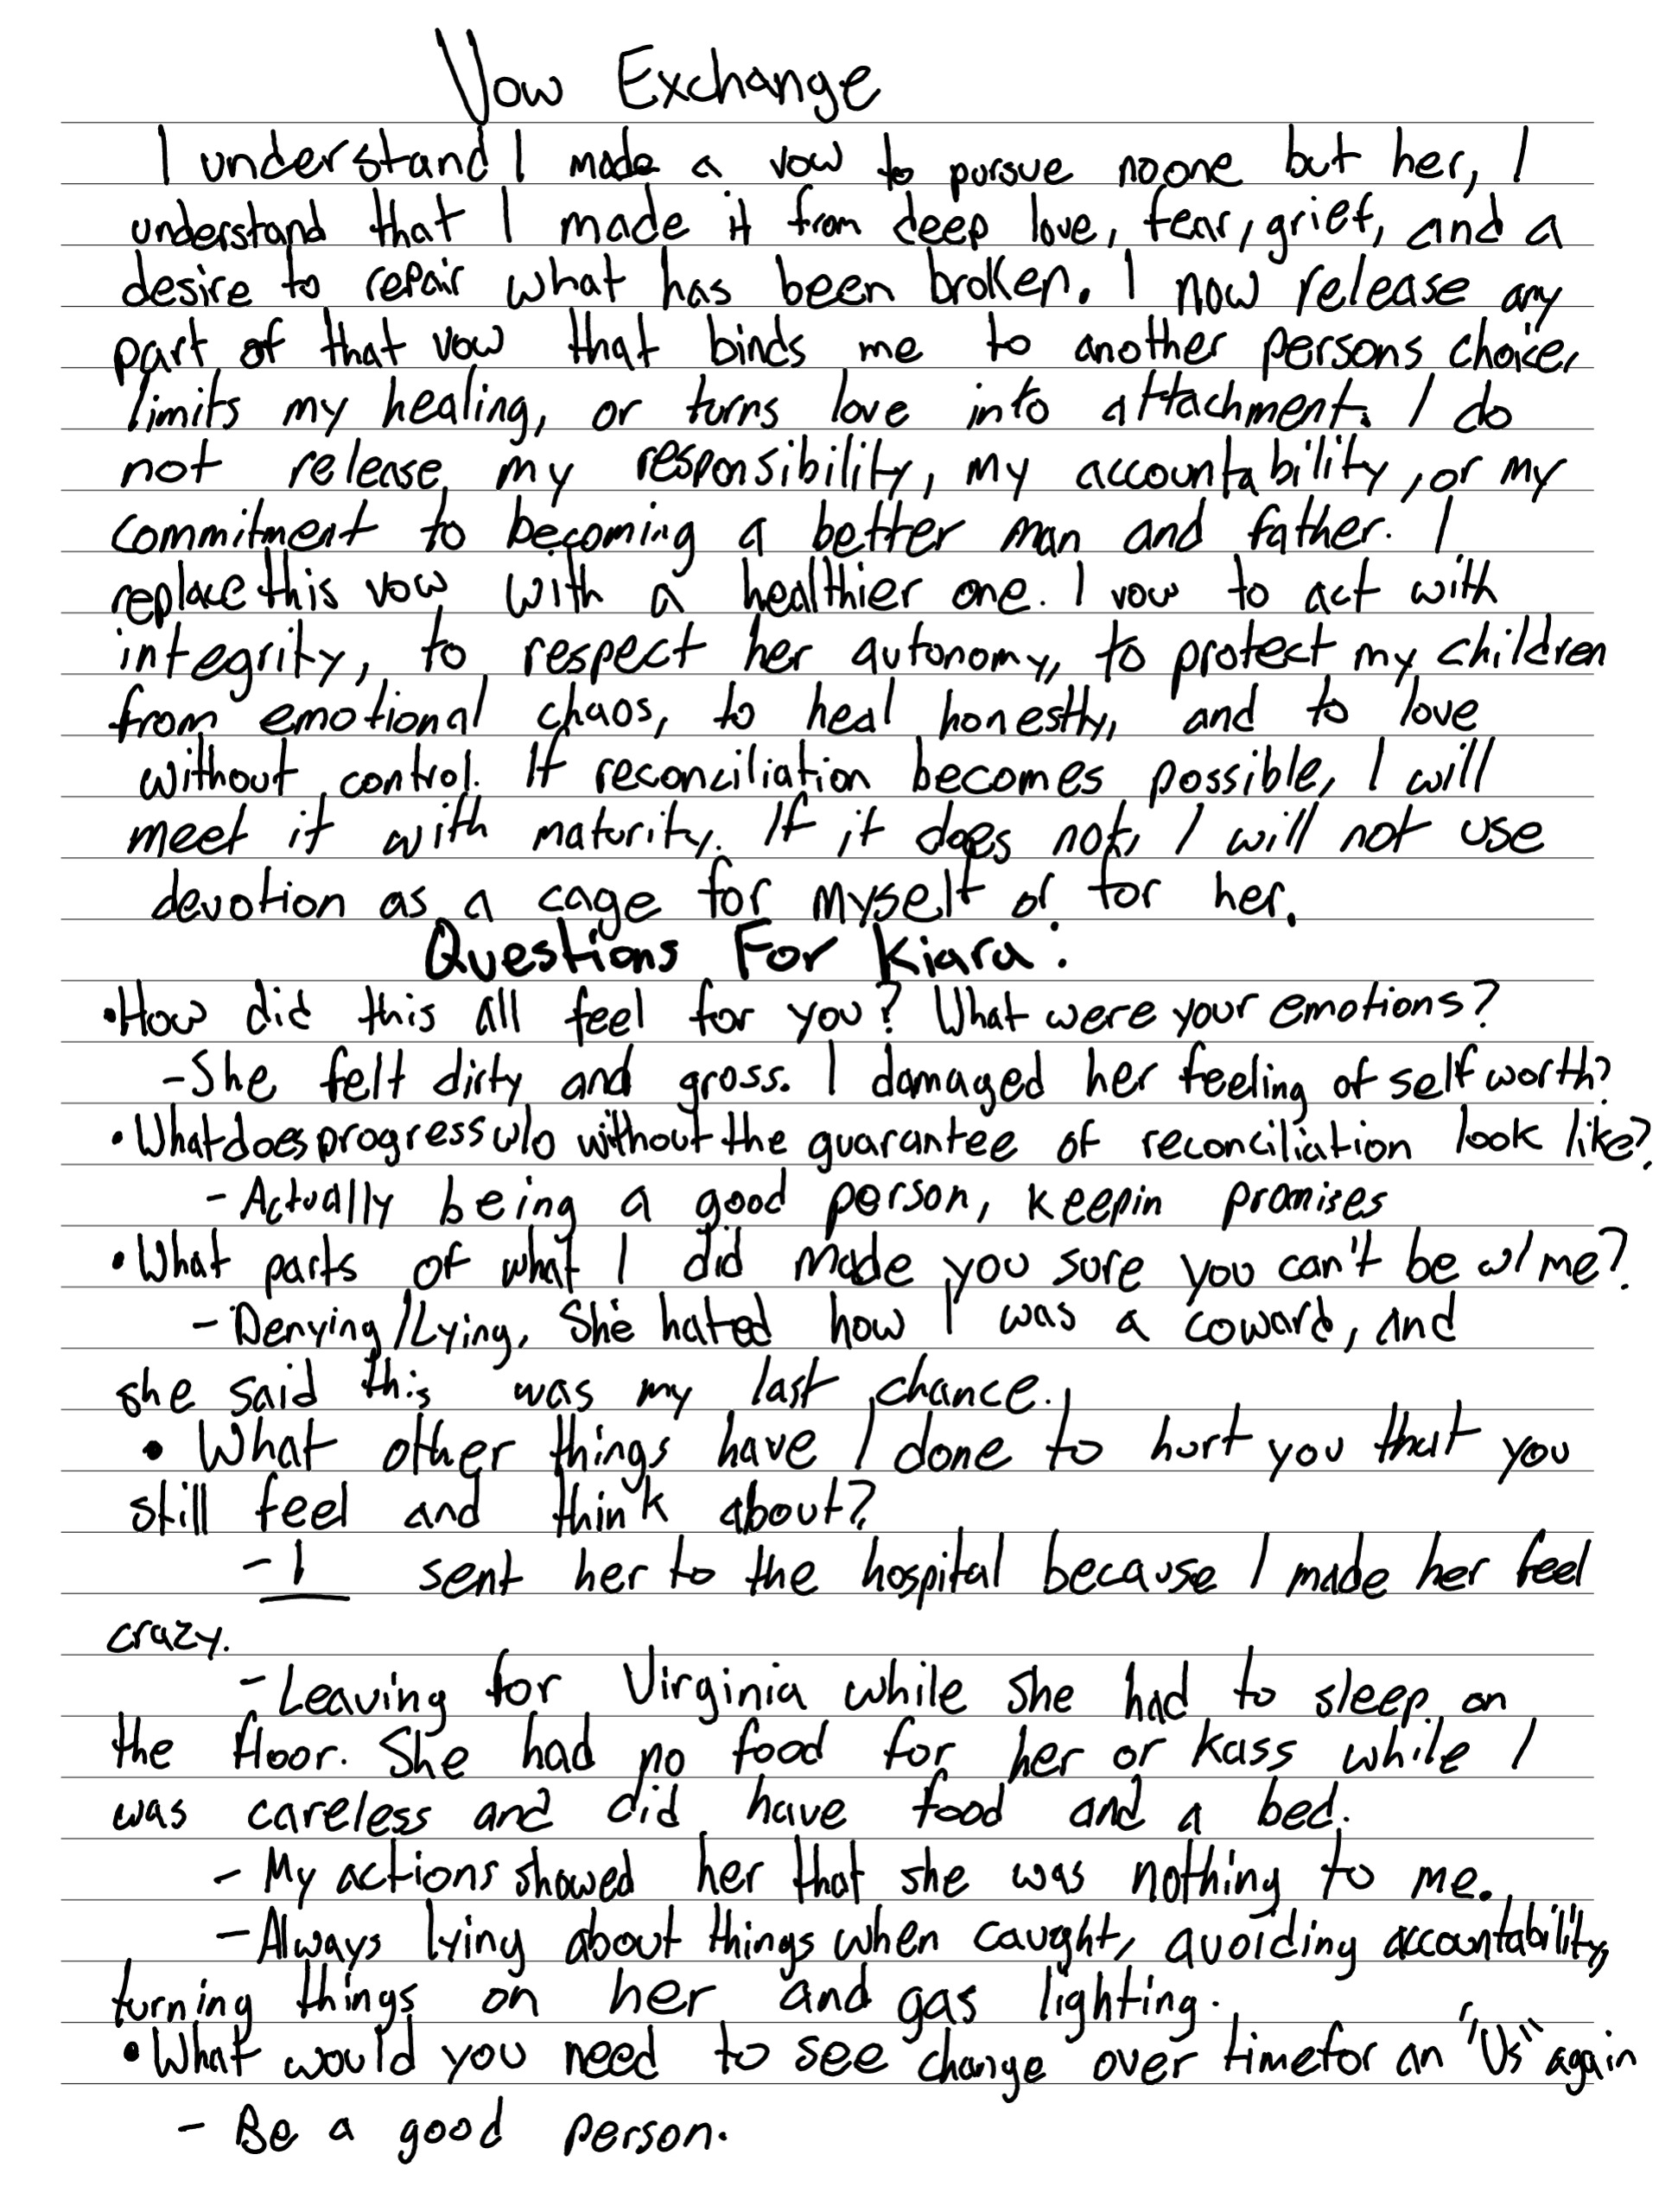 Vow Exchange
I understand I made a vow to pursue noone but her, I
understand that I made it from deep love, fear, grief, and a
desire to repair what has been broken. I now release any
part of that vow that binds me to another persons choice,
limits my healing, or turns love into attachment. I do
not release my responsibility, my accountability, or my
commitment to becoming a better man and father. I
replace this vow with a healthier one. I vow to act with
integrity, to respect her autonomy, to protect my children
from emotional chaos, to heal honestly, and to love
without control. If reconciliation becomes possible, I will
meet it with maturity. If it does not, I will not use
devotion as a cage for myself or for her.
Questions For Kiara:
•How did this all feel for you? What were your emotions?
-She felt dirty and gross. I damaged her feeling of self worth?
•What does progress w/o without the guarantee of reconciliation look like?
-Actually being a good person, keepin promises
•What parts of what I did made you sure you can't be w/ me?
-Denying/Lying, She hated how I was a coward, and
she said this was my last chance.
•What other things have I done to hurt you that you
still feel and think about?
-I sent her to the hospital because I made her feel
crazy.
-Leaving for Virginia while she had to sleep on
the floor. She had no food for her or Kass while I
was careless and did have food and a bed.
-My actions showed her that she was nothing to me.
-Always lying about things when caught, avoiding accountability,
turning things on her and gas lighting.
•What would you need to see change over time for an "Us" again
-Be a good person.